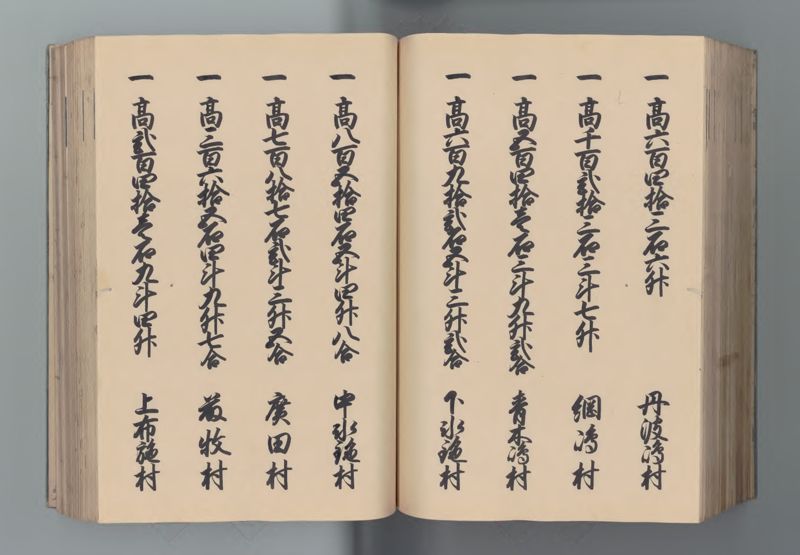 一 高六百四拾三石六升 丹波嶋村
一 高千百弐拾三石三斗七升 綱嶋村
一 高五百四拾壱石三斗九升弐合 青木嶋村
一 高六百九拾弐石五斗三升弐合 下氷鉋村
一 高八百五拾四石五斗四升八合 中氷鉋村
一 高七百八拾七石弐斗三升五合 廣田村
一 高三百六拾五石四斗九升七合 藤牧村
一 高弐百四拾壱石九斗四升 上布施村